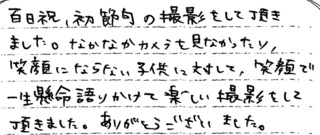 百日祝、初節句の撮影をして頂き
ました。なかなかカメラを見なかったり、
笑顔にならない子供に対して、笑顔で
一生懸命語りかけて楽しい撮影をして
頂きました。ありがとうございました。